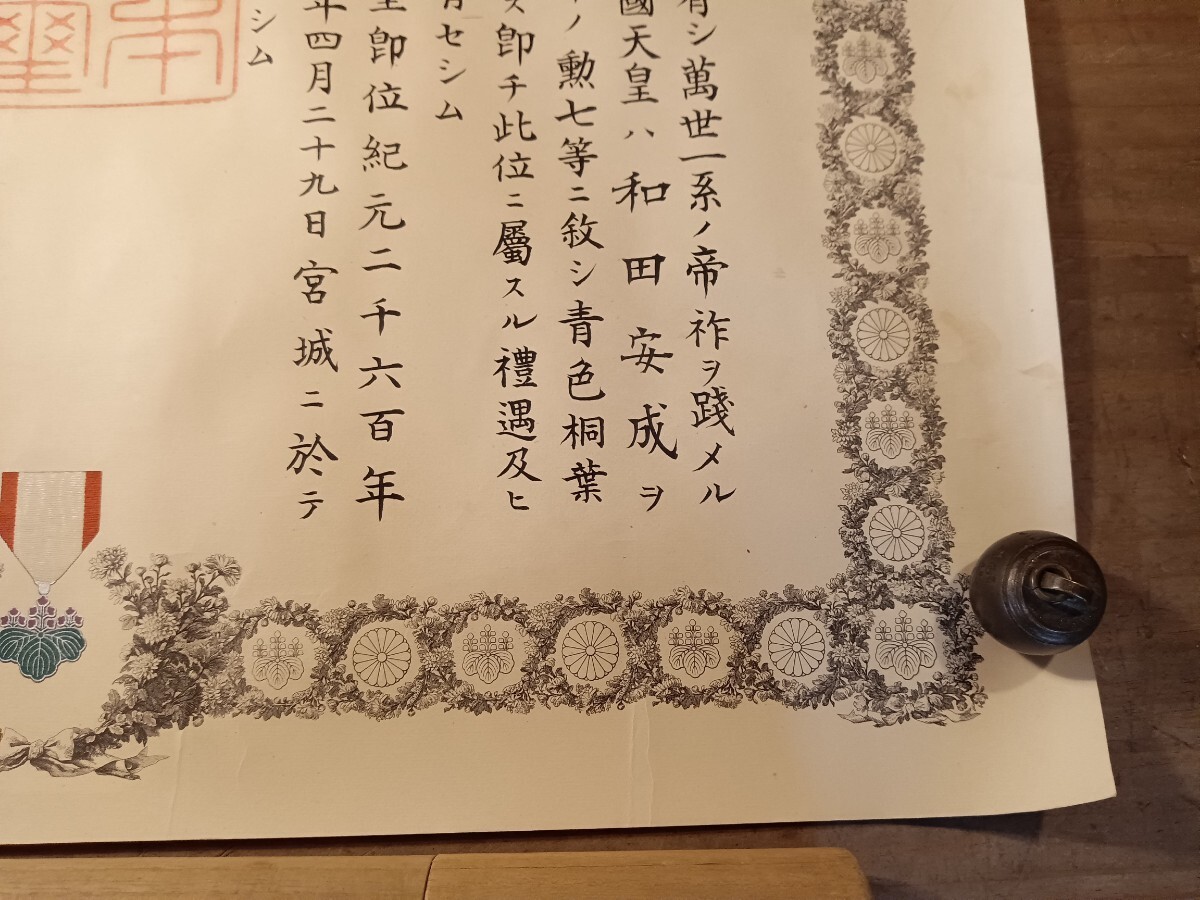 有シ萬世一系ノ帝祚ヲ踐メル
國天皇ハ和田安成ヲ
ノ勲七等ニ敘シ青色桐葉
ス卽チ此位ニ屬スル禮遇及ヒ
有セシム
皇卽位紀元二千六百年
年四月二十九日宮城ニ於テ
シム